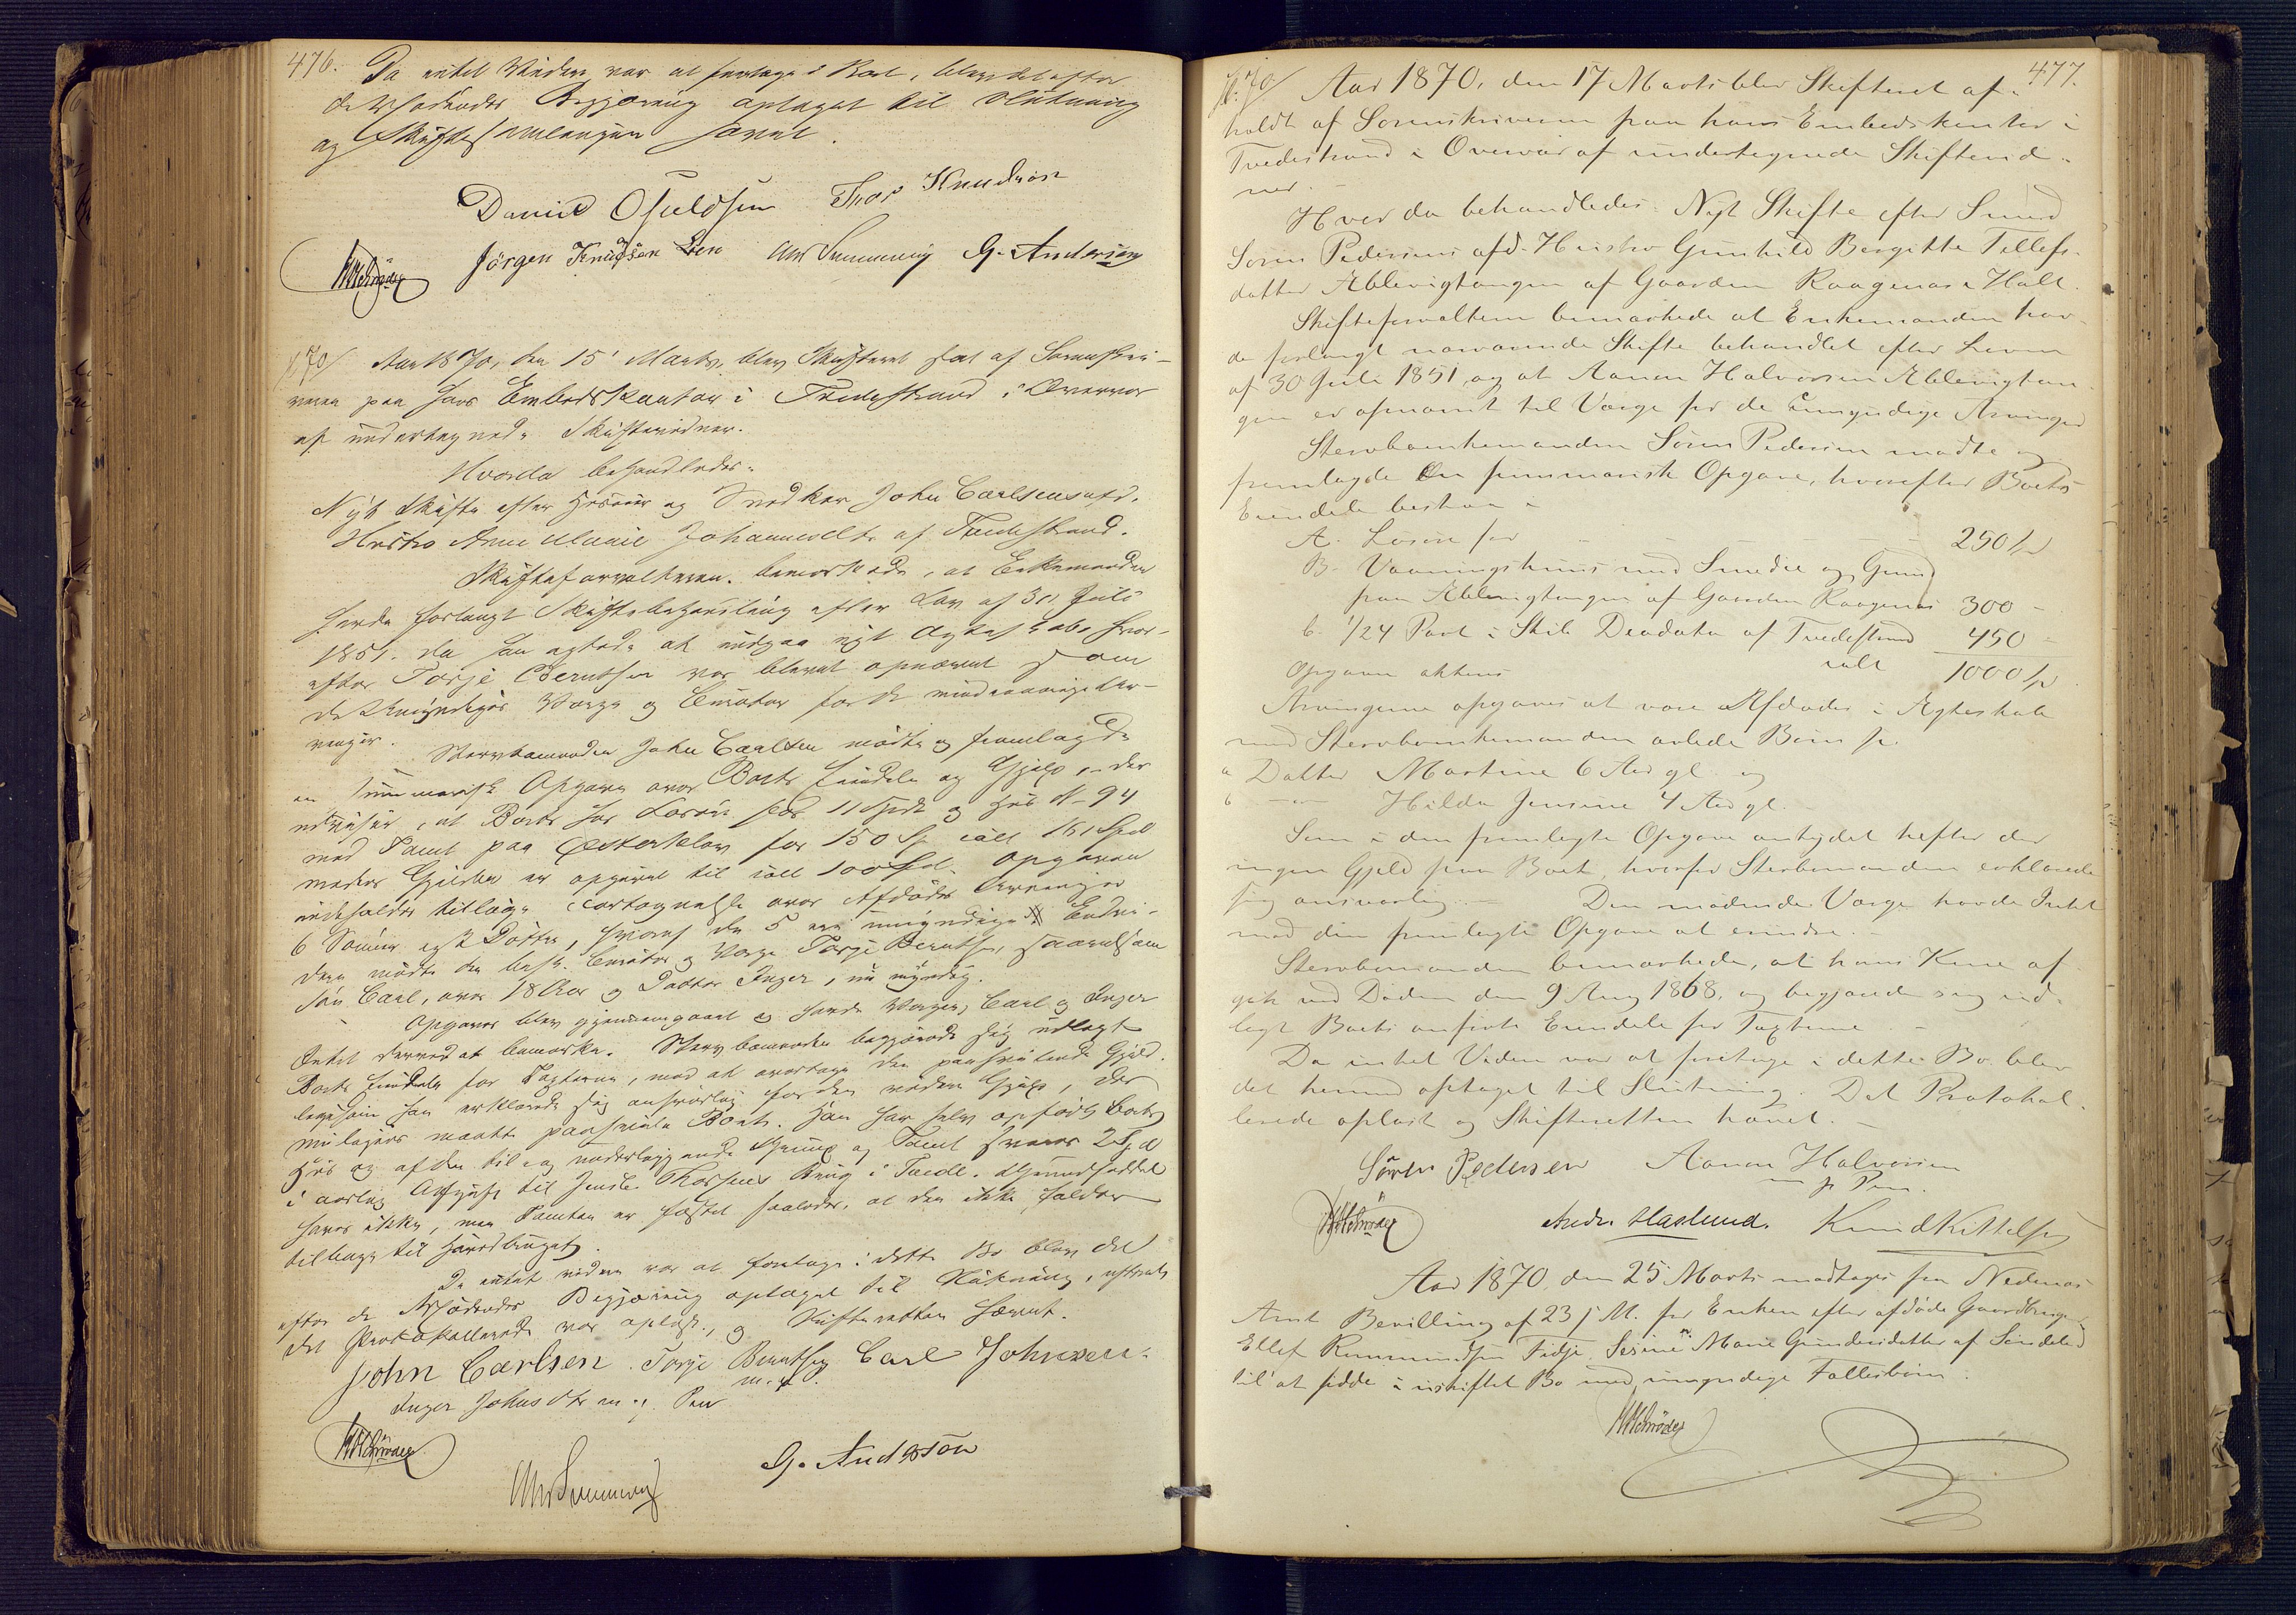 476.
Da intet Videre var at foretage i Boet, blev det efter
de Mødendes Begjæring optaget til Slutning
og Skiftesamlingen hævet.
Daniel Osuldsen Thor Knudsen
Jörgen Knudsen Lien G. Andersen
HSchrøder
/70/ Aar 1870, den 15 Marts, blev Skifteret sat af Sorenskri-
veren paa hans Embedskontor i Tvedestrand i Overvær
af undertegnede Skiftevidner.
Hvorda behandledes:
Nyt Skifte efter Huseier og Snedker John Carlsens afd.
Hustro Anne Marie Johannesdtr. af Tvedestrand.
Skifteforvalteren bemærkede, at Enkemanden
havde forlangt Skiftebehandling efter Lov af 30 Juli
1851. da han agtede at indgaa nyt Ægteskab, hvor-
efter Torje Berntsen var blevet opnævnt som
de Umyndiges Værge og Curator for de mindreaarige Ar-
vinger.
Stervbomanden John Carlsen mødte og fremlagde
en summarisk Opgave over Boets Eiendele og Gjæld, der
udviser, at Boet har Løsøre for 11 Spd og Hus N. 94
med Tomt paa Østerkleven for 150 Sp ialt 161 Spd
medens Gjælden er opgivet til ialt 100 Spd. Opgaven
indeholder tillige Fortegnelse over Afdødes Arvinger
6 Sønner og 1 Datter, hvoraf de 5 ere umyndige. Endvi-
dere mødte den besk. Curator og Værge Torje Berntsen, saavelsom
Søn Carl, over 18 Aar og Datter Inger, nu myndig.
Opgaven blev gjennemgaaet og havde Værgen, Carl og Inger
Intet derved at bemærke. Stervbomanden begjærede sig udlagt
Boets Eiendele for Taxterne, mod at overtage den paahvilende Gjæld.
ligesom han erklærede sig ansvarlig for den videre Gjæld, der
muligens maatte paahvile Boet. Han har selv opført Boets
Hus og af den til og underliggende Grund og Tomt svares 2 Spd
i aarlig Afgift til Jomfr. Thorsens Brug i Tvede. Grundseddel
haves ikke, men Tomten er fæstet saaledes, at den ikke falder
tilbage til Hovedbruget.
Da intet videre var at foretage i dette Bo blev det
efter de Mødendes Begjæring optaget til Slutning, efterat
det Protokollerede var oplæst, og Skifteretten hævet.
John Carlsen. Torje Berntsen Carl Johnsen.
m. p.
Inger Johnsdtr m. p. Pen
HSchrøder
G. Anderson
477.
/70/ Aar 1870, den 17 Marts blev Skifteret af-
holdt af Sorenskriveren paa hans Embedskontor i
Tvedestrand i Overvær af undertegnede Skiftevid-
ner.
Hvor da behandledes: Nyt Skifte efter Smed
Søren Pedersens afd. Hustro Gunhild Bergitte Tellefs-
datter Ablevigtangen af Gaarden Raagenæs i Holt.
Skifteforvalteren bemærkede at Enkemanden hav-
de forlangt nærværende Skifte behandlet efter Loven
af 30 Juli 1851, og at Aanon Halvorsen Ablevigtan-
gen er opnævnt til Værge for de umyndige Arvinger
Stervboenkemanden Søren Pedersen mødte og
fremlagde en summarisk Opgave, hvorefter Boets
Eiendele bestaa i
A. Løsøre for 250 Sp
B. Vaaningshuus med Smedie og Grund
paa Ablevigtangen af Gaarden Raagenæs 300 -
C. 1/24 Part i Skib Deodata af Tvedestrand 450 -
ialt 1000 Sp
Opgaven aktens
Arvingerne opgaves at være Afdødes i Ægteskab
med Stervboenkemanden avlede Børn s.
a Datter Martine 6 Aar gl. og
b — Hilda Jensine 4 Aar gl.
Som i den fremlagte Opgave antydet hefter der
ingen Gjeld paa Boet, hvorfor Stervbomanden erklærede
sig ansvarlig. — Den mødende Værge havde Intet
mod den fremlagte Opgave at erindre. -
Stervbomanden bemærkede, at hans Kone af-
gik ved Døden den 9 Aug 1868, og begjærede sig ud-
lagt Boets anførte Eiendele for Taxterne -
Da intet Videre var at foretage i dette Bo blev
det hermed optaget til Slutning. Det Protokol-
lerede oplæst og Skifteretten hævet. —
Sören Pedersen Aanon Halvorsen
m. p. Pen.
HSchrøder Andr. Haslund. Knud Kittelsen
Aar 1870, den 25 Marts modtages fra Nedenæs
Amt Bevilling af 23 d. M. for Enken efter afdøde Gaardbruger
Ellef Rummundsen Fidje Serine Marie Gundersdatter af Søndeled
til at sidde i uskiftet Bo med umyndige Fællesbørn.
HSchrøder